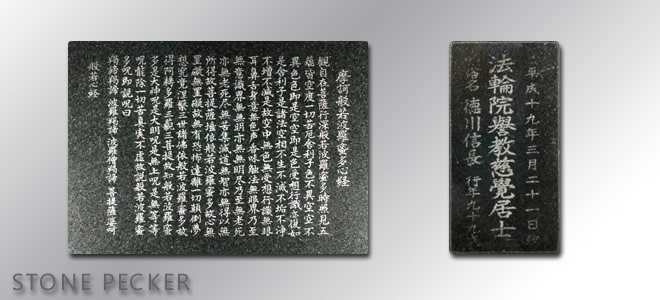 摩訶般若波羅蜜多心經
觀自在菩薩行深般若波羅蜜多時照見五
蘊皆空度一切苦厄舍利子色不異空空不
異色色即是空空即是色受想行識亦復如
是舍利子是諸法空相不生不滅不垢不淨
不增不減是故空中無色無受想行識無眼
耳鼻舌身意無色聲香味觸法無眼界乃至
無意識界無無明亦無無明盡乃至無老死
亦無老死盡無苦集滅道無智亦無得以無
所得故菩提薩埵依般若波羅蜜多故心無
罣礙無罣礙故無有恐怖遠離一切顛倒夢
想究竟涅槃三世諸佛依般若波羅蜜多故
得阿耨多羅三藐三菩提故知般若波羅蜜
多是大神呪是大明呪是無上呪是無等等
呪能除一切苦真實不虛故說般若波羅蜜
多呪即說呪曰
羯諦羯諦 波羅羯諦 波羅僧羯諦 菩提薩婆訶
般若心經
平成十九年三月二十一日
法輪院譽教慈覺居士
俗名 徳川信長 行年九十九
STONE PECKER